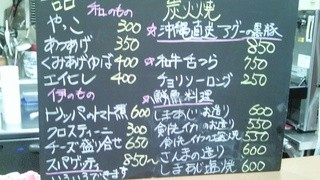 品
和のもの
やっこ 300
あつあげ 350
くみあげゆば 400
エイヒレ 400
伊のもの
トリッパのトマト煮 600
クロスティーニ 300
チーズ盛り合せ 650
スパゲッティ 850〜
いろいろできます
炭火焼
☆沖縄直史アグーの黒豚 850
☆和牛舌つら 750
チョリソーロング 250
☆鮮魚料理
しまあじお造り 600
さんまの造り 600
しまあじ塩焼 600